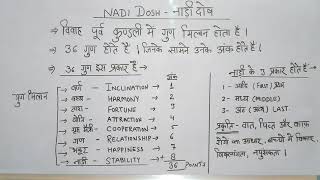 NADI DOSH - नाडी दोष
→ विवाह पूर्व कुण्डली में गुण मिलान होता है।
→ 36 गुण होते हैं। जिनके सामने उनके अंक होते हैं।
→ 36 गुण इस प्रकार है -
गुण मिलान
→ वर्ण - INCLINATION - 1
→ वश्य - HARMONY - 2
→ तारा - FORTUNE - 3
→ योनि - ATRACTION - 4
→ ग्रह मैत्री - COOPERATION - 5
→ गण - RELATIONSHIP - 6
→ भकूट - HAPPINESS - 7
→ नाडी - STABILITY - + 8
36 POINTS
नाडी के 3 प्रकार होते हैं -
1 - आदि (FAST)
2 - मध्य (MIDDLE)
3 - अंत (LAST)
प्रकृति - वात, पित्त और कफ
रोगों का आधार, बच्चों में विकार,
विकलांगता, नपुंसकता।